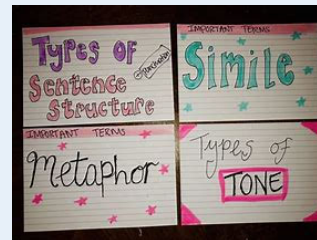 Types of
Sentence
Structure
IMPORTANT TERMS
Simile
IMPORTANT TERMS
Metaphor
Types of
TONE